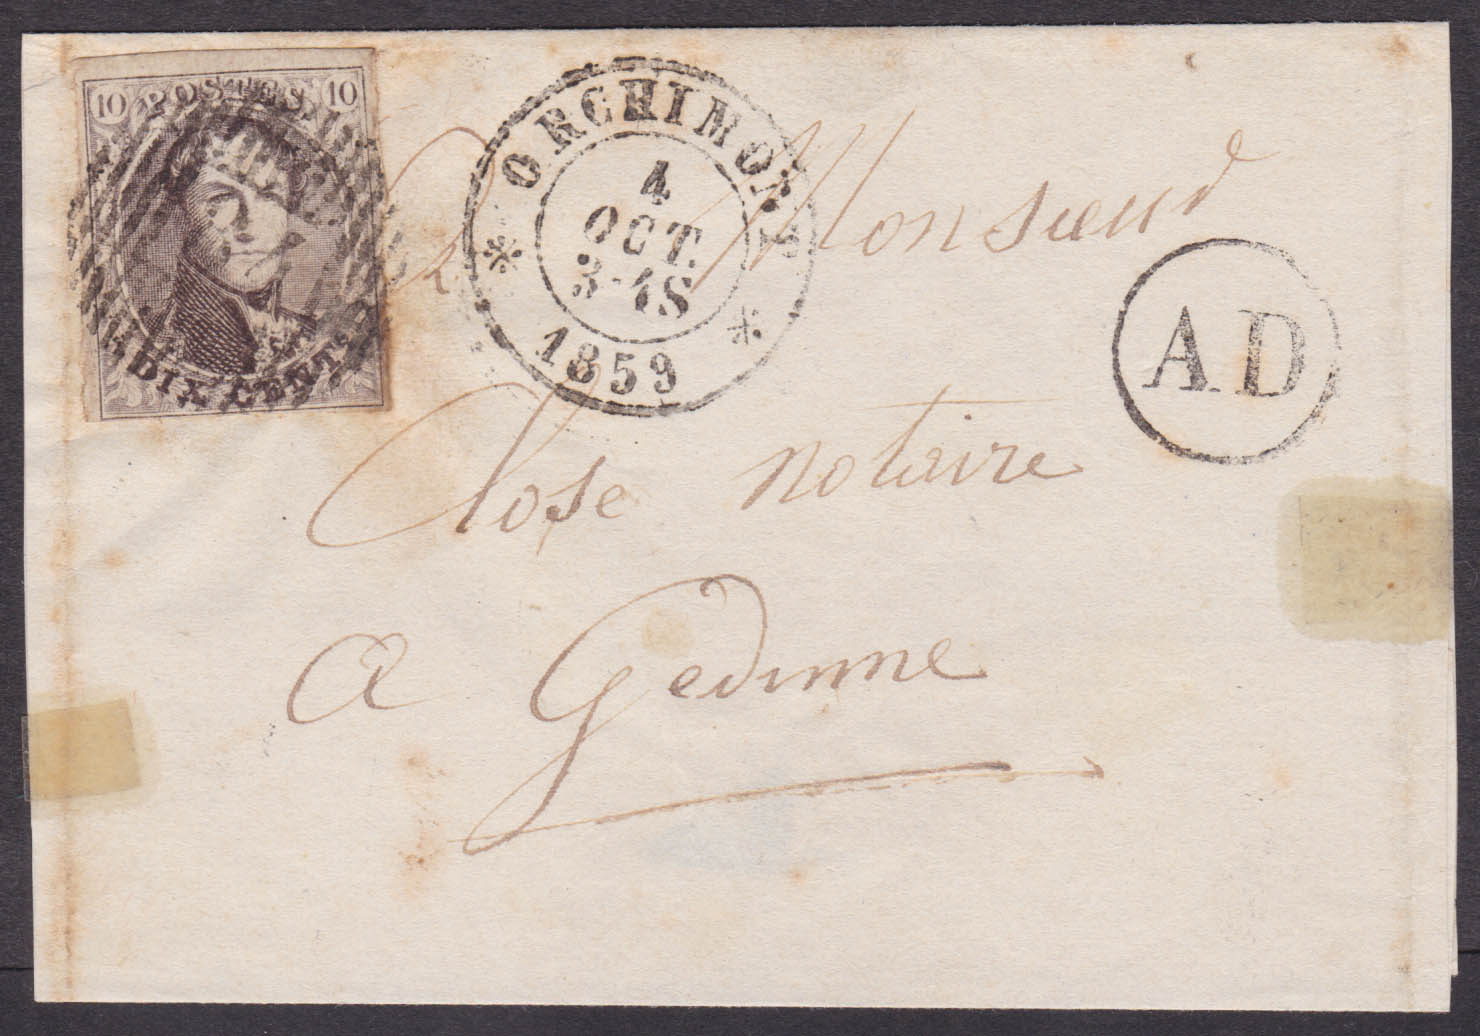 10 POSTES 10
DIX CENTS
ORCHIMONT
4
OCT.
3-4S
1859
AD
Monsieur
Close notaire
a Gedinne